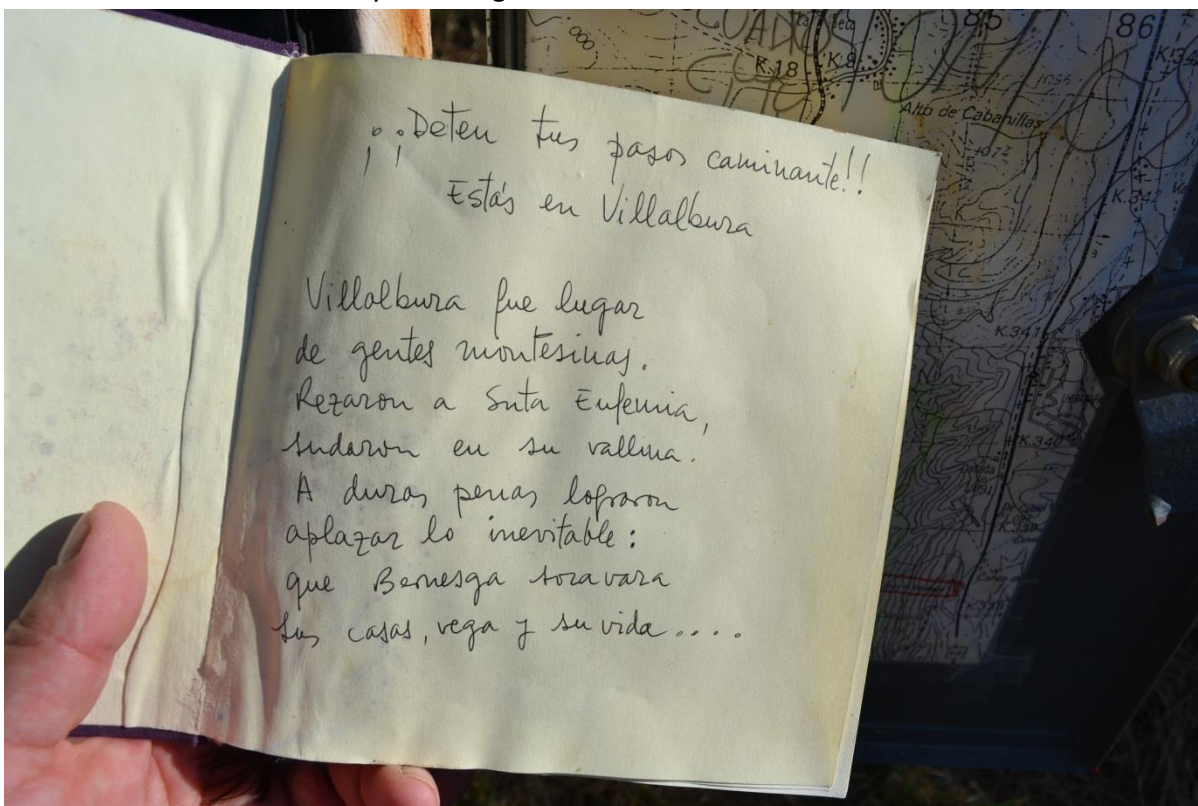 ¡¡Deten tus pasos caminante!!
Estás en Villalbura
Villalbura fue lugar
de gentes montesinas.
Rezaron a Snta Eufemia,
sudaron en su vallina.
A duras penas lograron
aplazar lo inevitable:
que Bernesga socavara
sus casas, vega y su vida....
85
86
K.18
K.8
Alto de Cabanillas
1074
K.342
K.341
K.340